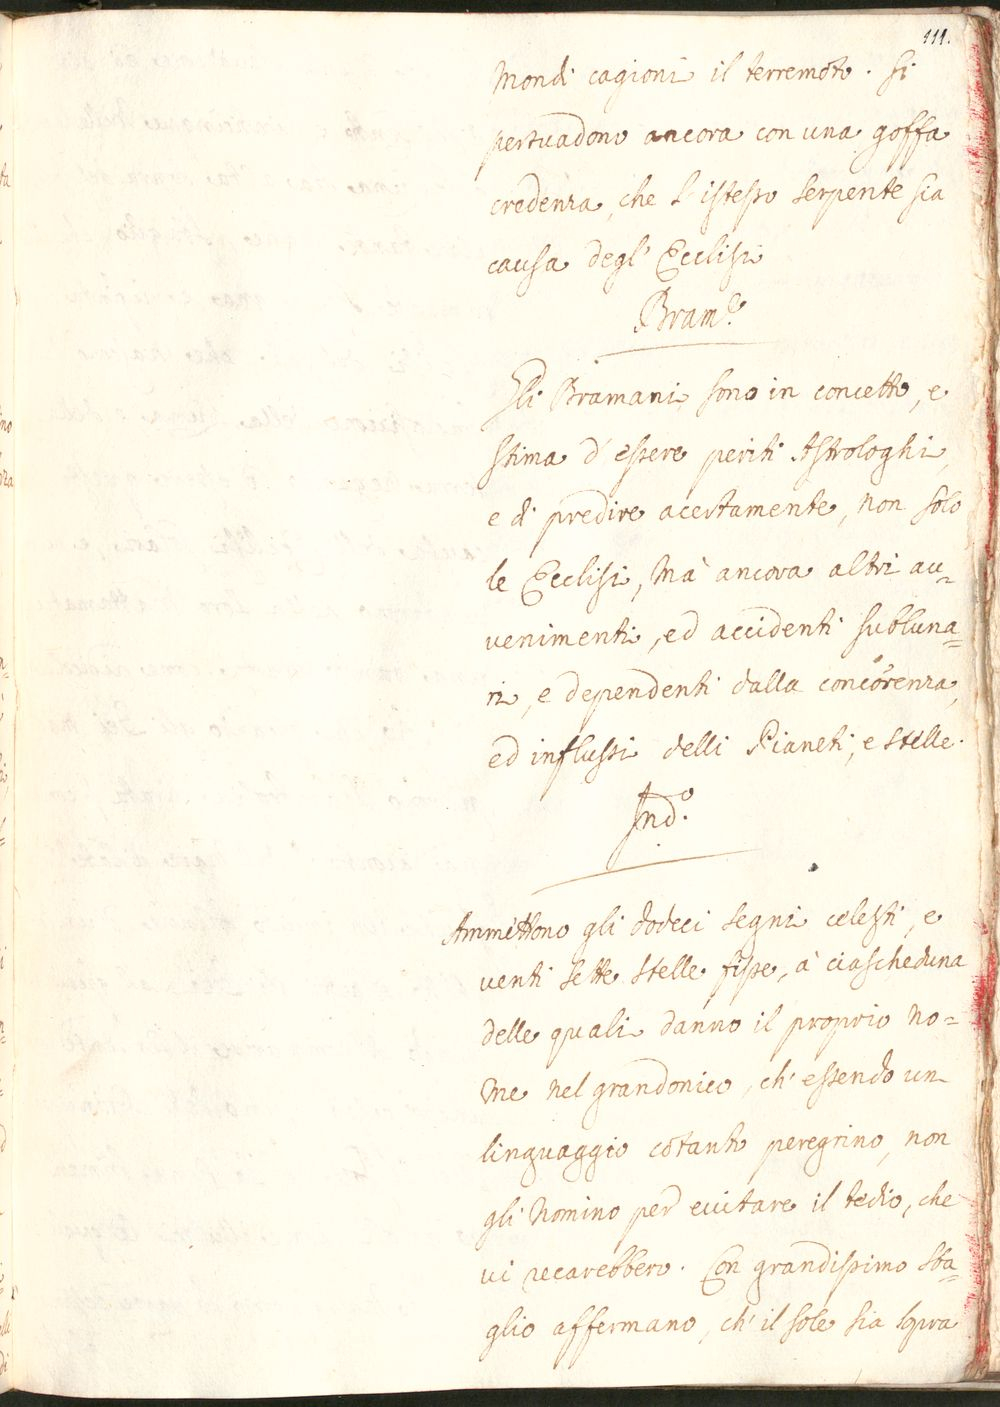 111.
Mondi cagioni il terremoto. Si
persuadono ancora con una goffa
credenza, che l'istesso serpente sia
causa degl' Ecclisi
Bram.e
Gli Bramani sono in concetto, e
stima d'essere periti Astrologhi,
e di predire acertamente, non solo
le Ecclisi, mà ancora altri au=
uenimenti, ed accidenti subluna=
ri, e dependenti dalla concorrenza,
ed influssi delli Pianeti, e stelle.
Ind.o
Ammettono gli dodeci segni celesti, e
venti sette stelle fisse, à ciascheduna
delle quali danno il proprio no=
me nel grandonico, ch'essendo un
linguaggio cotanto peregrino, non
gli nomino per euitare il tedio, che
ui recarebbero. Con grandissimo sba=
glio affermano, ch'il sole sia sopra